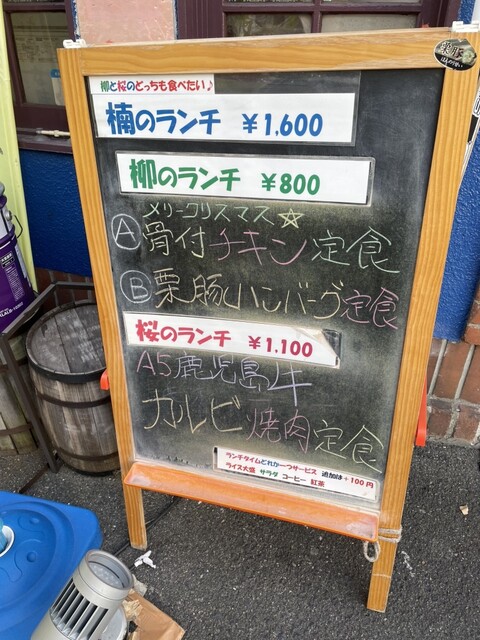 柳と桜のどっちも食べたい♪
楠のランチ ￥1,600
柳のランチ ￥800
メリークリスマス☆
Ⓐ骨付チキン定食
Ⓑ栗豚ハンバーグ定食
桜のランチ ￥1,100
A5鹿児島牛
カルビ焼肉定食
ランチタイムどれか一つサービス 追加は+100円
ライス大盛 サラダ コーヒー 紅茶